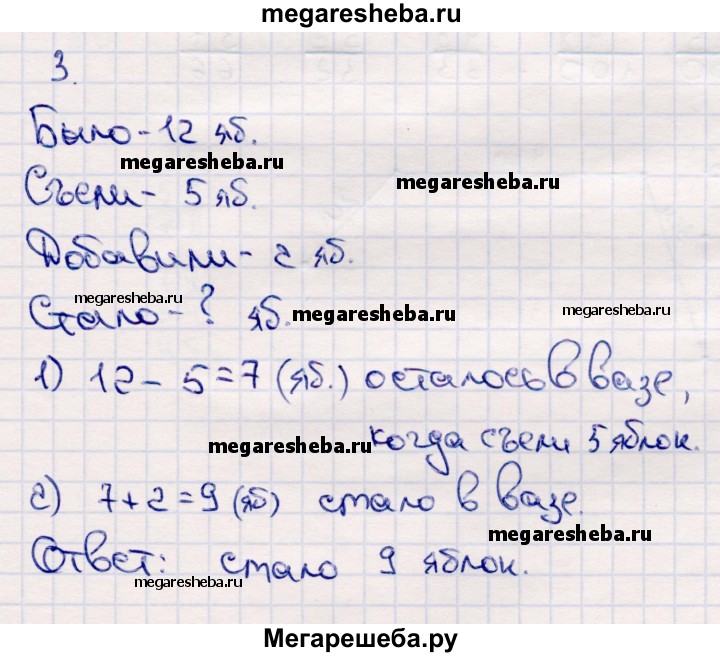 megaresheba.ru
3.
Было - 12 яб.
megaresheba.ru
Съели - 5 яб.
megaresheba.ru
Добавили - 2 яб.
megaresheba.ru
Стало - ? яб.
megaresheba.ru
megaresheba.ru
1) 12 - 5 = 7 (яб.) осталось в вазе,
megaresheba.ru
когда съели 5 яблок.
2) 7 + 2 = 9 (яб) стало в вазе.
megaresheba.ru
Ответ: стало 9 яблок.
megaresheba.ru
Мегарешеба.ру